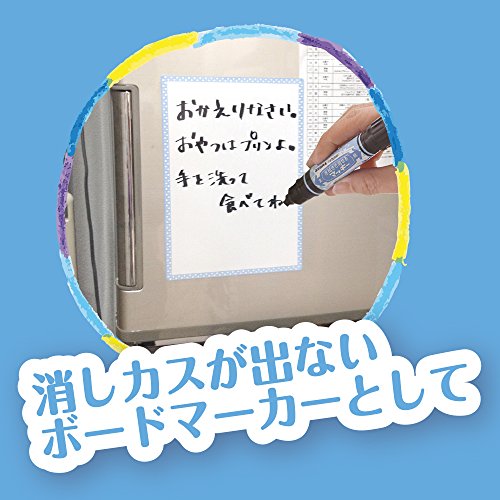 おかえりなさい。
おやつはプリンよ。
手を洗って
食べてね
消しカスが出ない
ボードマーカーとして